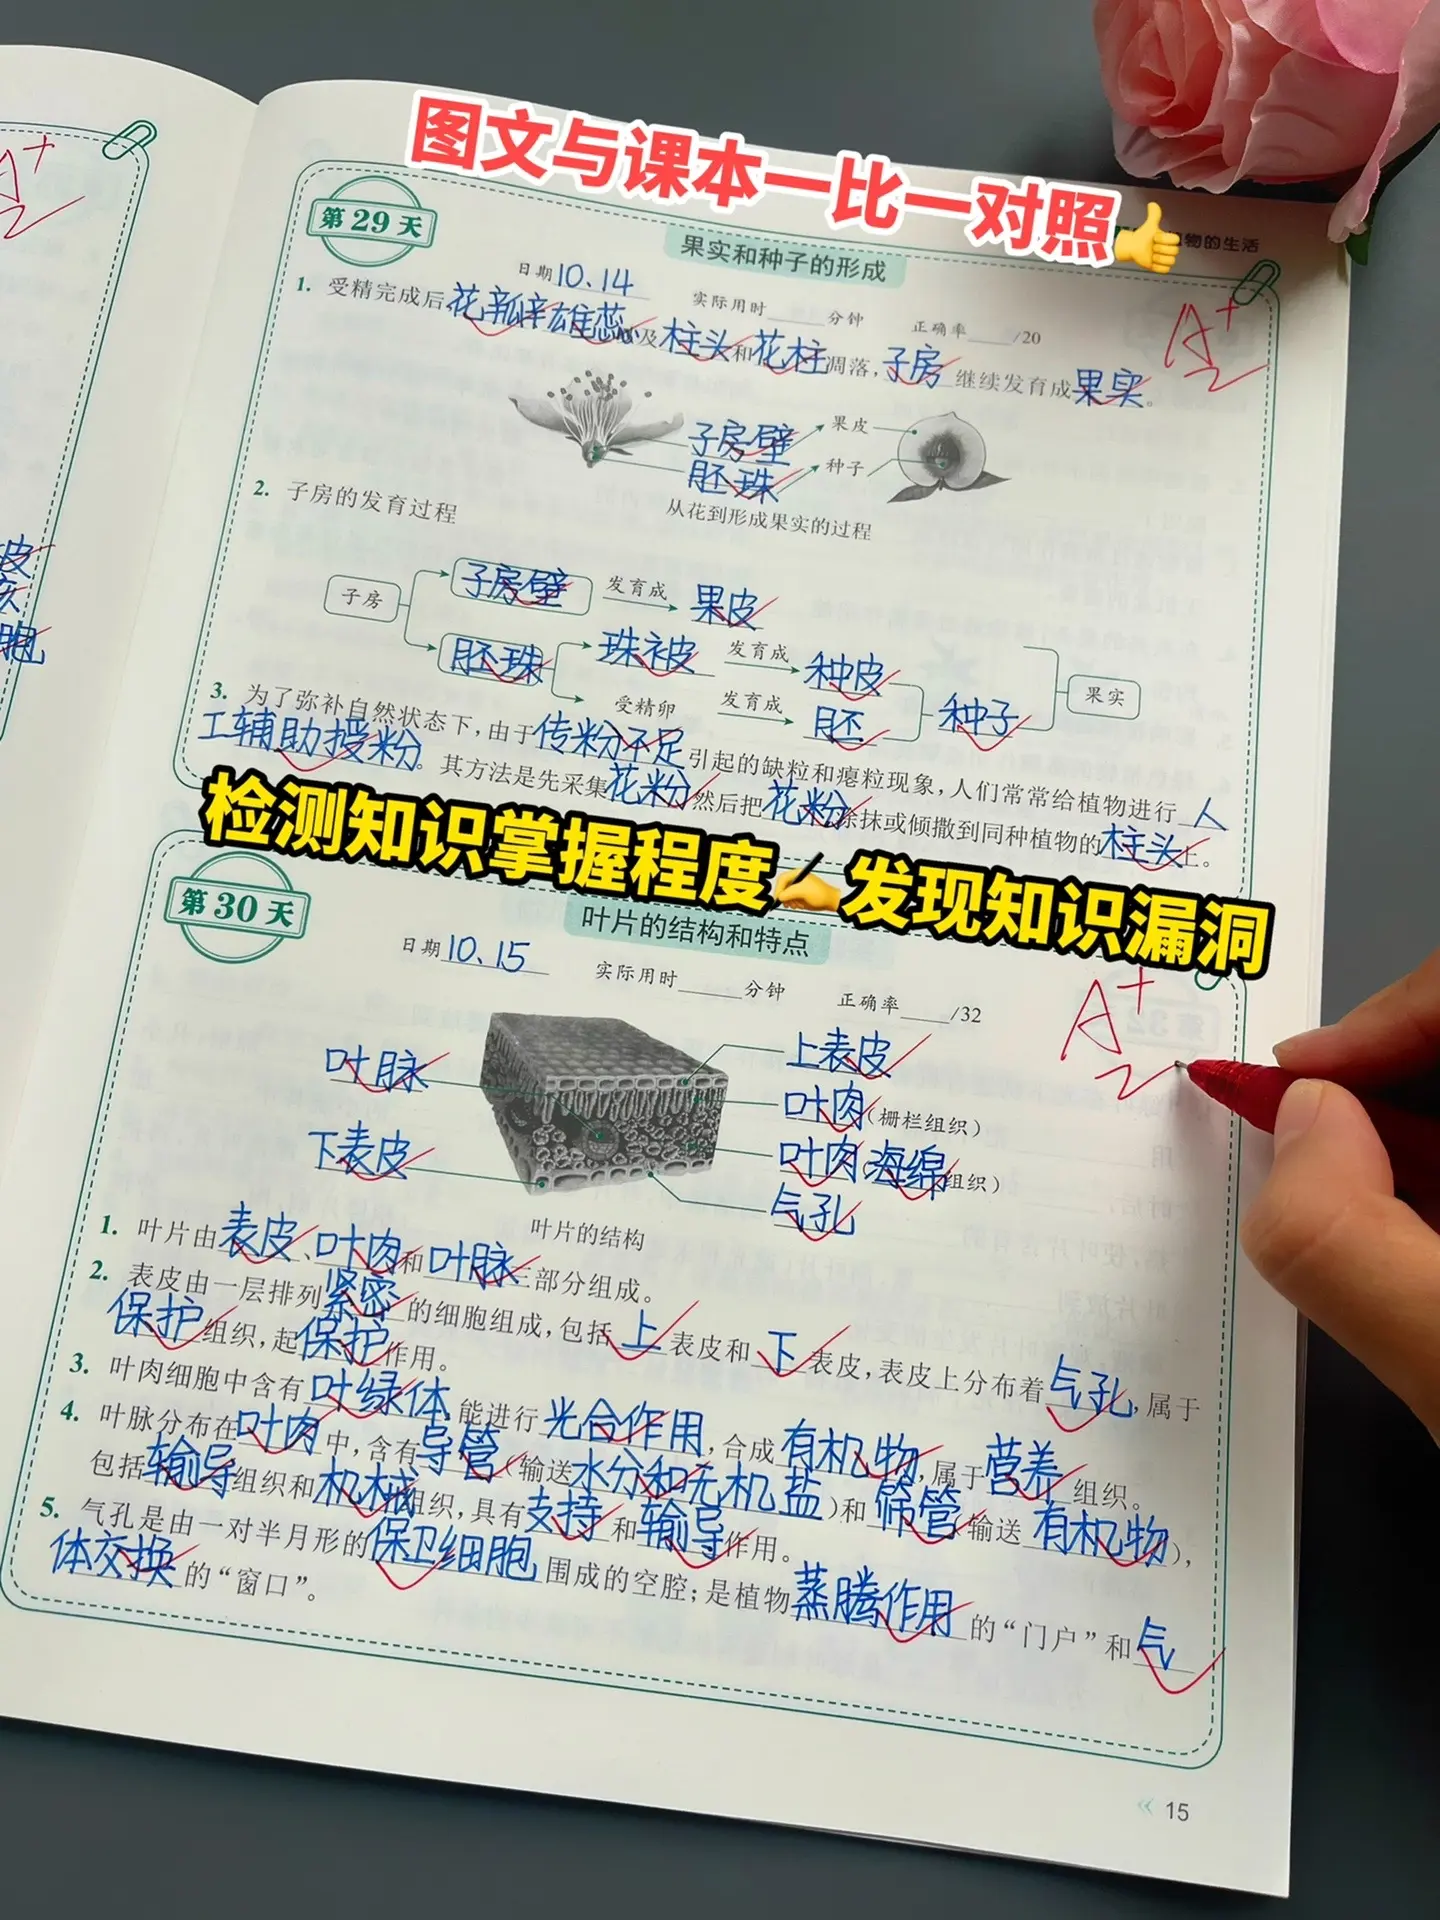 图文与课本一比一对照👍
物的生活
A+
第29天
果实和种子的形成
日期10.14 实际用时 分钟 正确率 /20
A+
1. 受精完成后,花瓣、雄蕊以及柱头和花柱凋落,子房继续发育成果实。
子房壁 果皮
胚珠 种子
从花到形成果实的过程
2. 子房的发育过程
子房 子房壁 发育成 果皮
胚珠 珠被 发育成 种皮
受精卵 发育成 胚 种子 果实
3. 为了弥补自然状态下,由于传粉不足引起的缺粒和瘪粒现象,人们常常给植物进行人
工辅助授粉。其方法是先采集花粉然后把花粉涂抹或倾撒到同种植物的柱头上。
皮
胞
检测知识掌握程度✍发现知识漏洞
第30天
叶片的结构和特点
日期10.15 实际用时 分钟 正确率 /32
A+
叶脉 上表皮
叶肉(栅栏组织)
下表皮 叶肉(海绵组织)
气孔
叶片的结构
1. 叶片由表皮、叶肉和叶脉三部分组成。
2. 表皮由一层排列紧密的细胞组成,包括上表皮和下表皮,表皮上分布着气孔,属于
保护组织,起保护作用。
3. 叶肉细胞中含有叶绿体,能进行光合作用,合成有机物,属于营养组织。
4. 叶脉分布在叶肉中,含有导管(输送水分和无机盐)和筛管(输送有机物),
包括输导组织和机械组织,具有支持和输导作用。
5. 气孔是由一对半月形的保卫细胞围成的空腔;是植物蒸腾作用的“门户”和气
体交换的“窗口”。
15